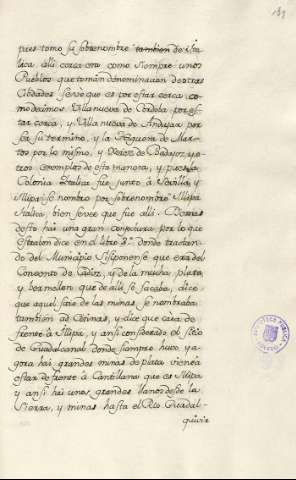 pues tomo su sobrenombre tambien de Ita
lica, alli cerca era como siempre unos
Pueblos que toman denominacion de otras
Cibdades se vé que es por estar cerca, co
mo decimos Villanueva de Cordova por es
tar cerca, y Villanueva de Andujar por
ser su termino, y la Higuera de Mar
tos por lo mismo, y Veros de Badajoz y o
tros exemplos de esta manera, y pues la
Colonia Italica fue junto á Sevilla, y
Illipa se nombro por sobrenombre Illipa
Italica, bien se vee que fue alli. Demas
desto hai una gran conjetura por lo que
Estrabon dice en el libro 3º donde tratan
do del Municipio Sisiponense que era del
Convento de Cadiz, y de la mucha plata,
y bermellon que de alli se sacaba, dice
que aquel sitio de las minas se nombraba
tambien ad Œrinas, y dice que caia de
frente á Illipa, y ansi considerado el sitio
de Guadalcanal donde siempre huvo y a
gora hai grandes minas de plata viene á
estar de frente á Cantillana que es Illipa
y ansi hai unos grandes llanos desde la
Sierra, y minas hasta el Rio Guadal-
quivir